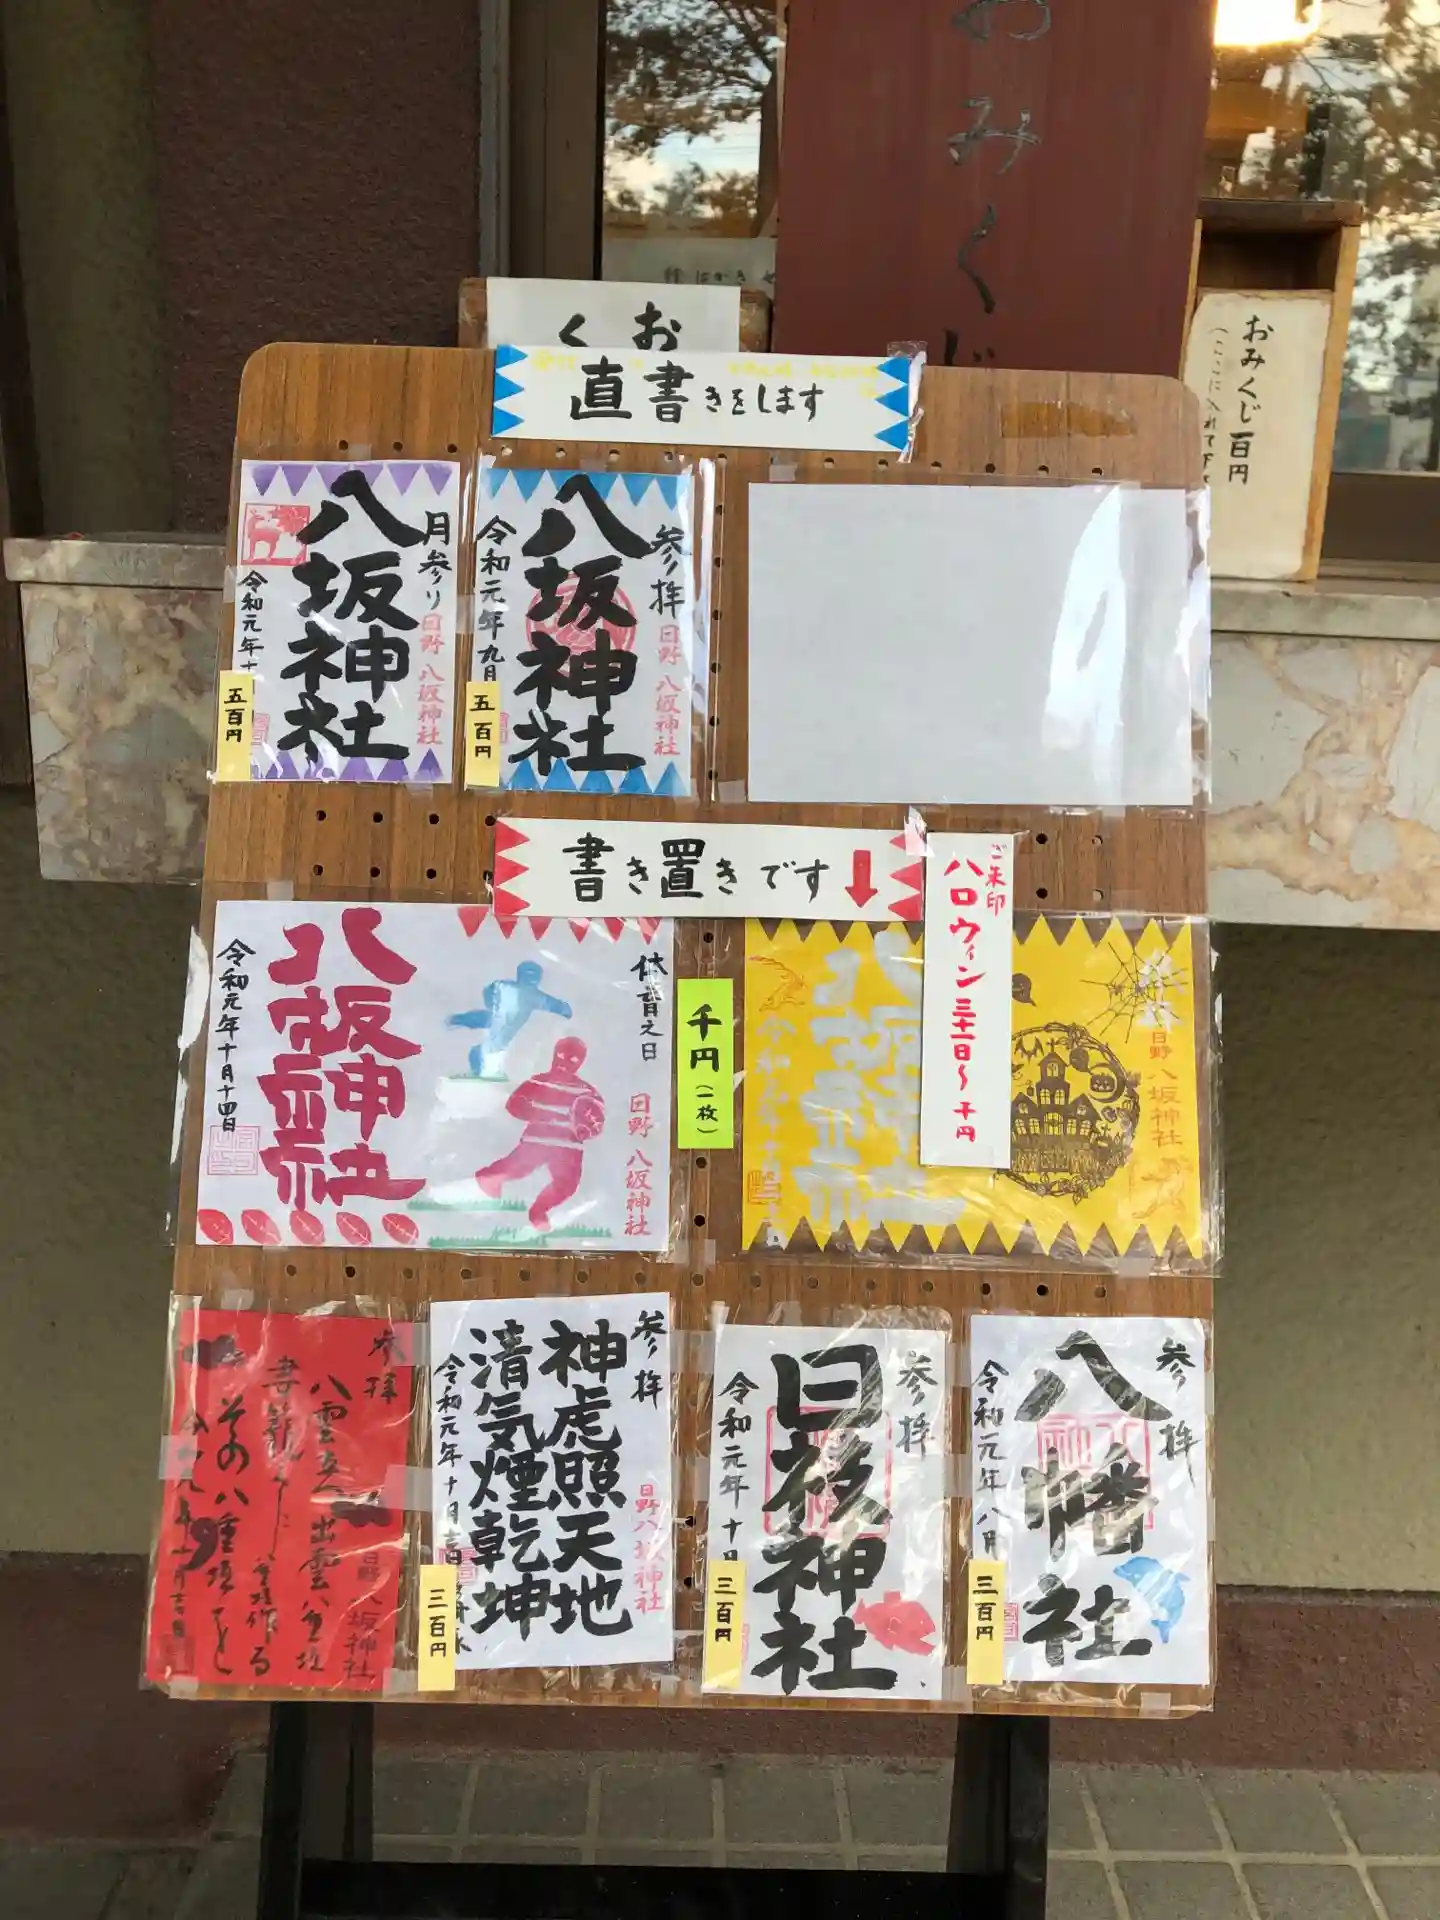 おみくじ
おみくじ百円
お
く
直書きをします
月参り
八坂神社
日野 八坂神社
五百円
参拝
八坂神社
令和元年九月
日野 八坂神社
五百円
書き置きです
ご朱印
ハロウィン 三十一日〜 千円
体育之日
八坂神社
令和元年十月十四日
日野 八坂神社
千円(一枚)
八坂神社
日野 八坂神社
参拝
八雲立つ 出雲八重垣
その八重垣を
八坂神社
三百円
参拝
神虑照天地
清気煙乾坤
日野八坂神社
三百円
参拝
日枝神社
三百円
参拝
八幡社
令和元年八月
三百円